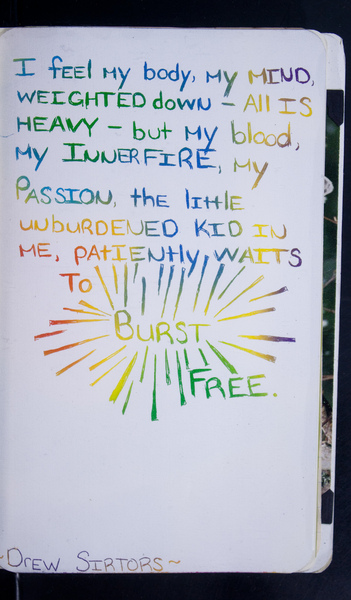 I feel my body, my MIND,
WEIGHTED down - All IS
HEAVY - but my blood,
my INNERFIRE, my
PASSION, the little
unbuRDENED KID IN
ME, pAtIEntly, WAITS
To
BURST
FREE.
~DREW SIRTORS~